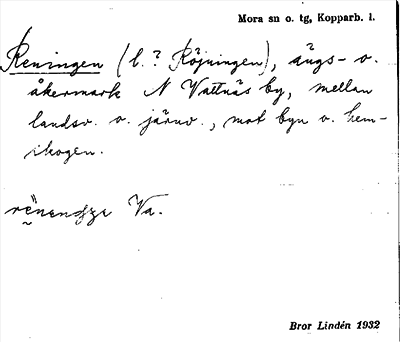 Mora sn o. tg, Kopparb. l.
Reningen (l. ? Röjningen), ängs- o.
åkermark N Vattnäs by, mellan
landsv. o. järnv., mot byn o. hem-
skogen.
Va.
Bror Lindén 1932